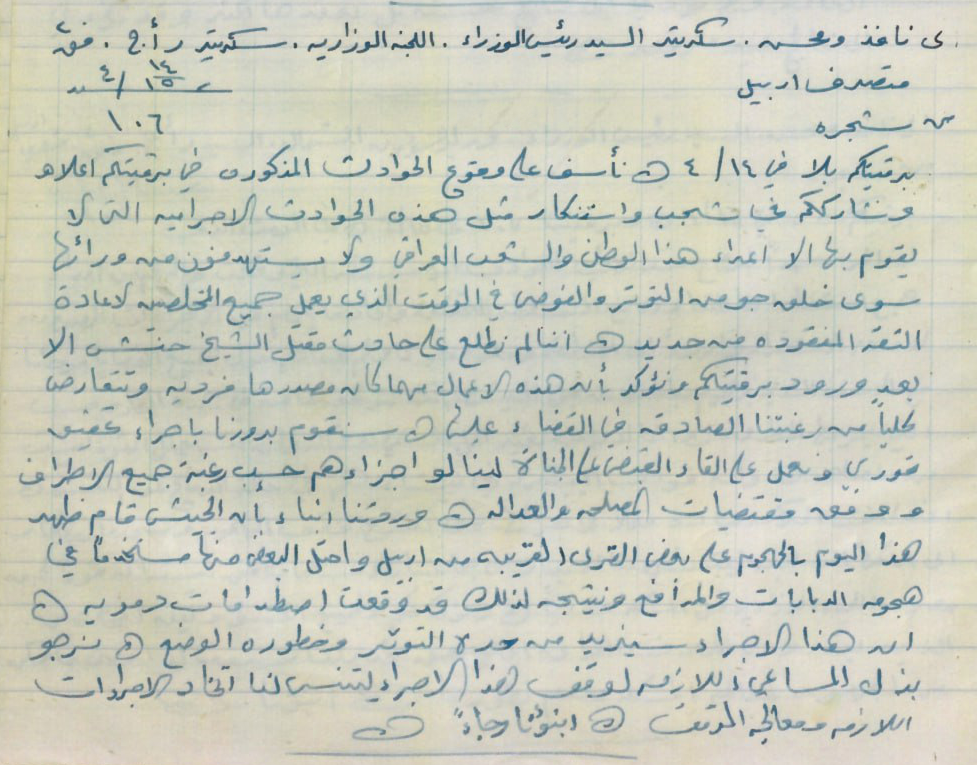 ى نافذ ومحسن . سكرتير السيد رئيس الوزراء . اللجنة الوزاريه . سكرتير ر أ ج . فق
متصرف اربيل
١٤/١٥ / ٤
من شجره
١٠٦
برقيتكم بلا في ١٤ / ٤ نأسف على وقوع الحوادث المذكوره في برقيتكم اعلاه
ونشارككم في شجب واستنكار مثل هذه الحوادث الاجراميه التي لا
يقوم بها الا اعداء هذا الوطن والشعب العراقي ولا يستهدفون من ورائها
سوى خلق جو من التوتر والفوضى في الوقت الذي يعمل جميع المخلصين لاعادة
الثقه المفقوده من جديد اننا لم نطلع على حادث مقتل الشيخ حنتش الا
بعد ورود برقيتكم ونؤكد بأن هذه الاعمال مهما كان مصدرها فرديه وتتعارض
كلياً مع رغبتنا الصادقه في القضاء عليها سنقوم بدورنا باجراء تحقيق
فوري ونعمل على القاء القبض على الجناة لينالو اجزاءهم حسب رغبة جميع الاطراف
ووفق مقتضيات المصلحه والعداله وردتنا انباء بأن الجيش قام ظهر
هذا اليوم بالهجوم على بعض القرى القريبه من اربيل واحتل البعض منها مستخدماً في
هجومه الدبابات والمدافع ونتيجه لذلك قد وقعت اصطدامات دمويه
ان هذا الاجراء سيزيد من حدة التوتر وخطوره الوضع نرجو
بذل المساعي اللازمه لوقف هذا الاجراء ليتسنى لنا اتخاذ الاجراءات
اللازمه ومعالجة الموقف انبئونا رجاءً